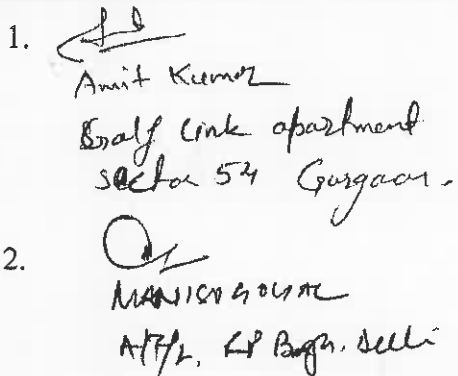 1.
Amit Kumar
Golf Link apartment
sector 54 Gurgaon.
2.
MANISH GOYAL
Bagh. Delhi